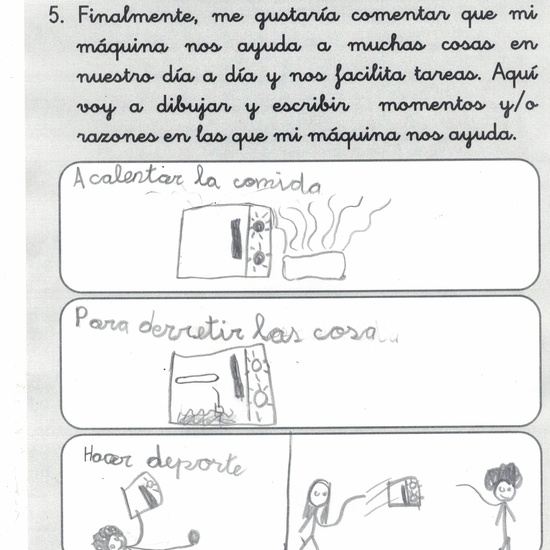 5. Finalmente, me gustaría comentar que mi
máquina nos ayuda a muchas cosas en
nuestro día a día y nos facilita tareas. Aquí
voy a dibujar y escribir momentos y/o
razones en las que mi máquina nos ayuda.
A calentar la comida
Para derretir las cosa
Hacer deporte